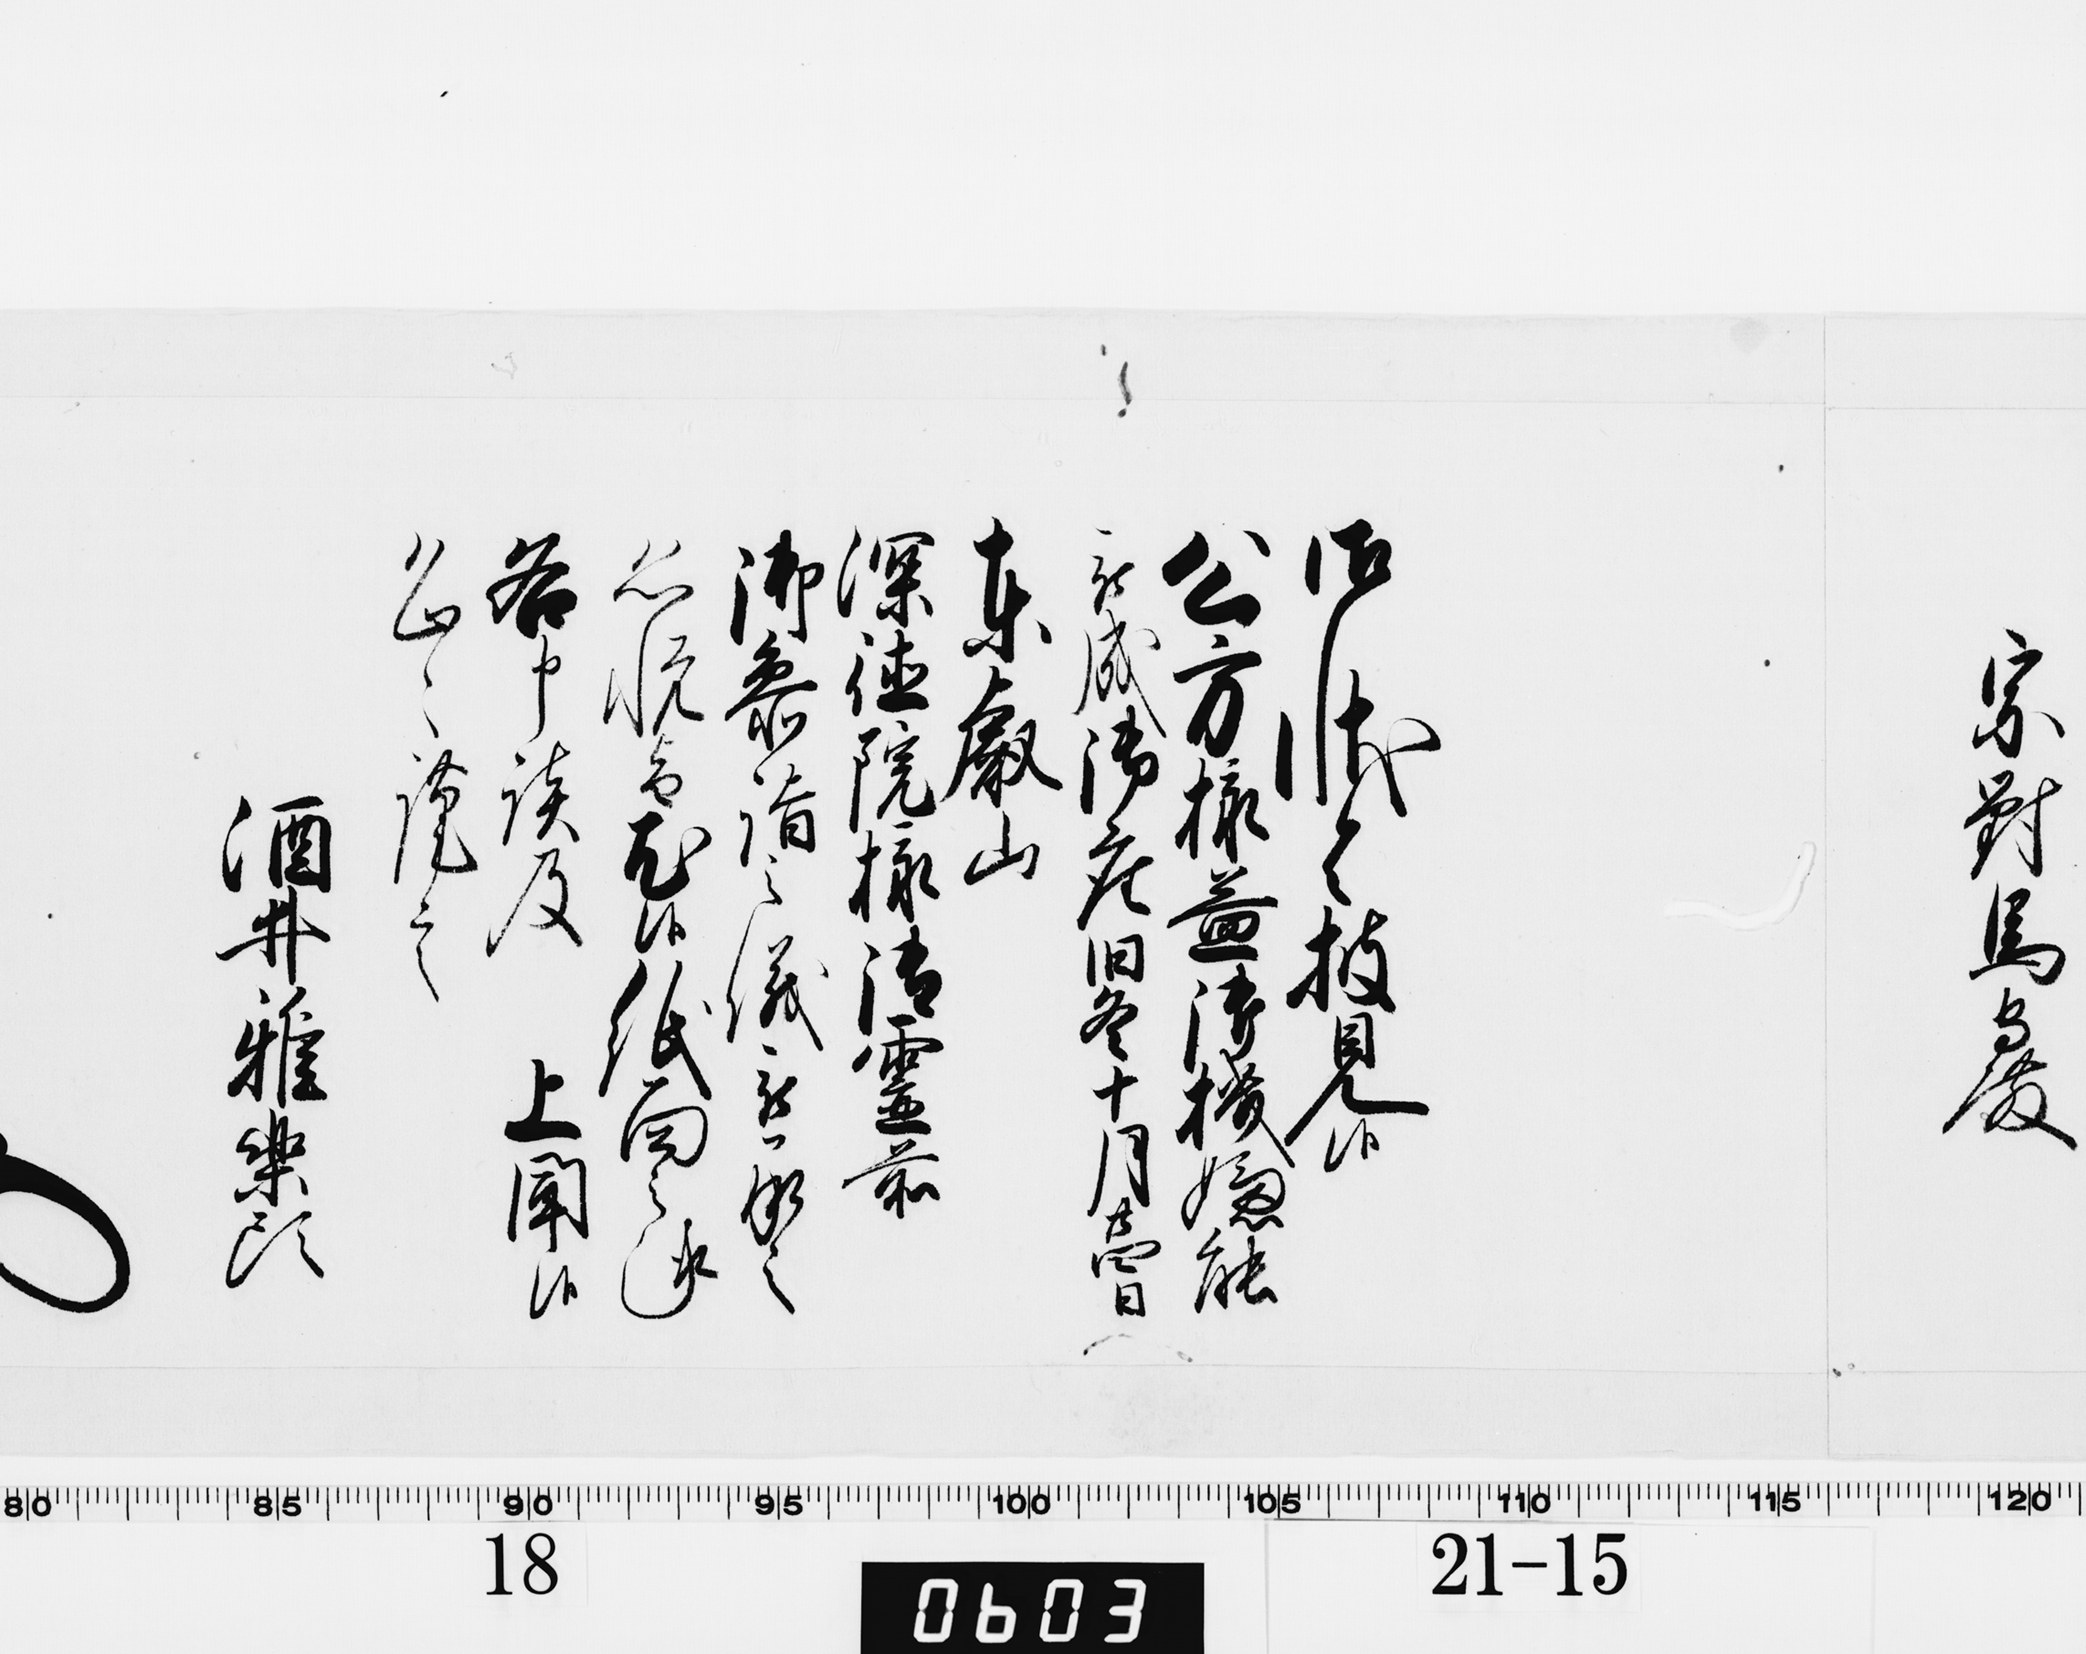 宗對馬守殿
御状令披見候
公方様益御機嫌能
被成御座旧冬十月
東叡山
深徳院様御霊前
御参詣之儀被承之
恐悦旨尤候紙面之趣
各申談及　上聞候
恐々謹言
酒井雅楽頭
80 85 90 95 100 105 110 115 120
18
0603
21-15